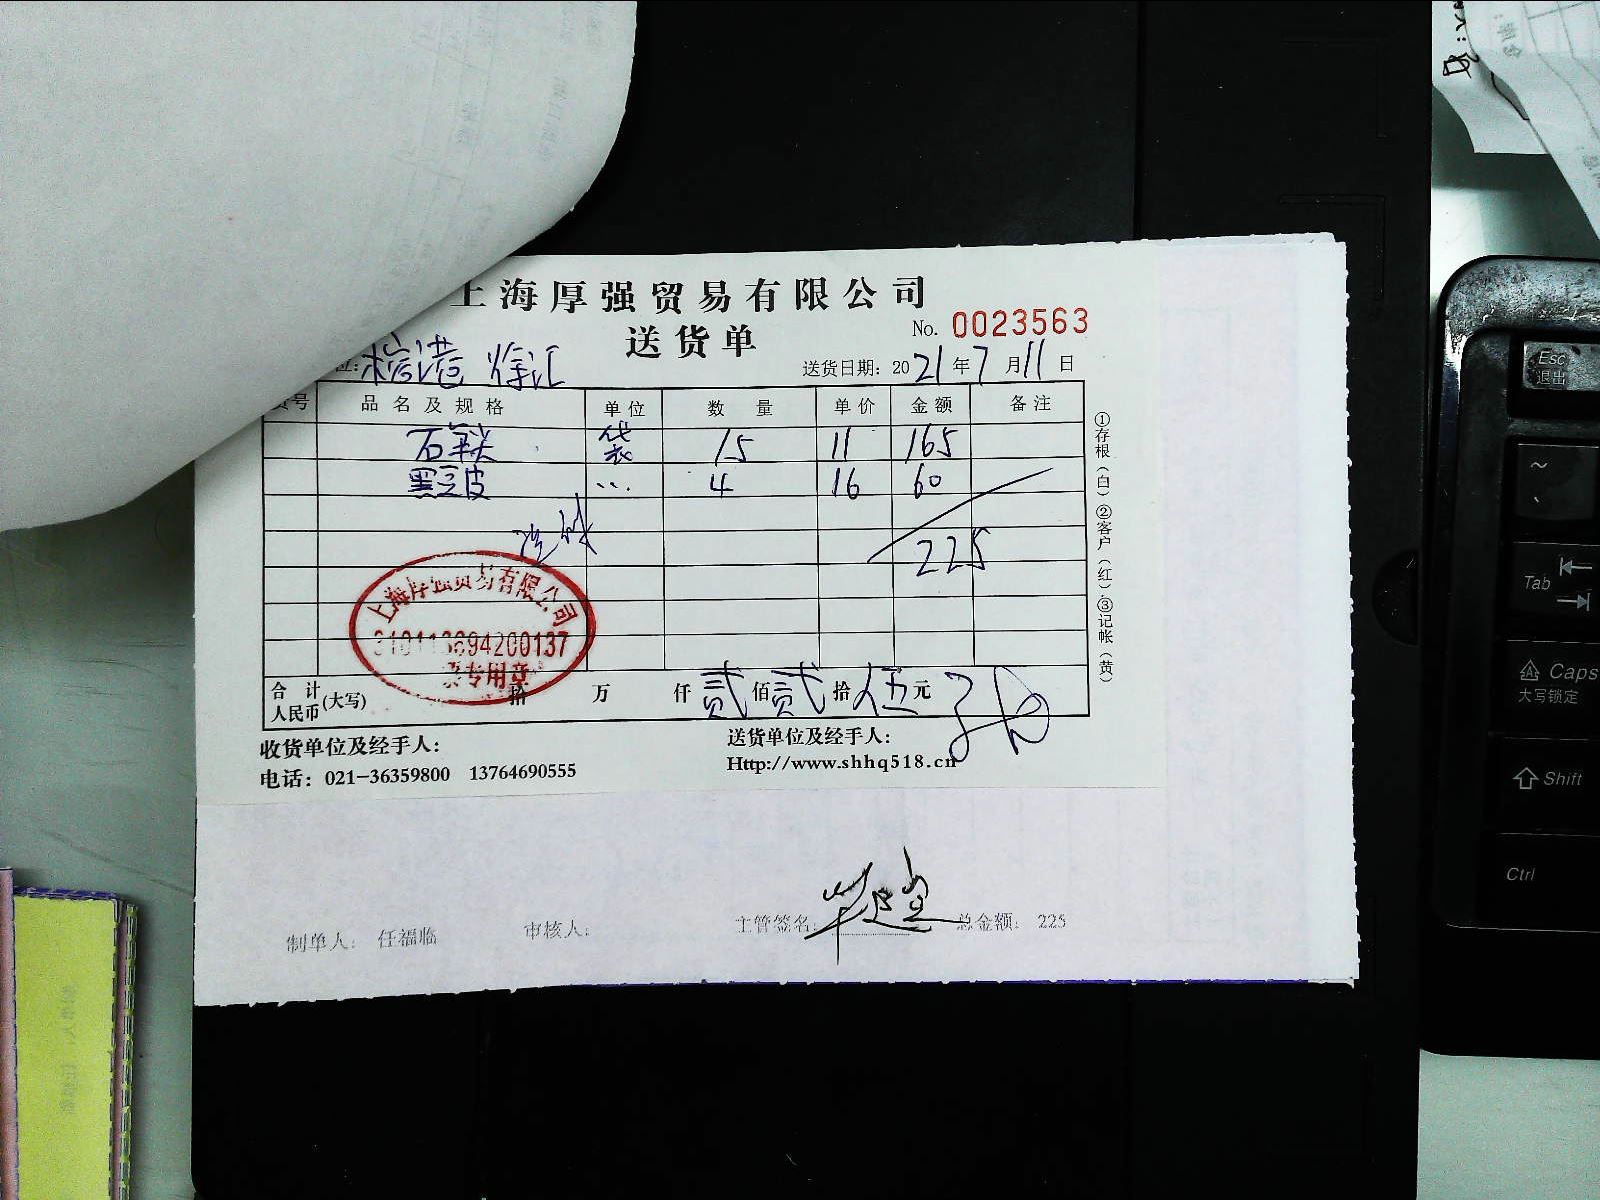 上海厚强贸易有限公司
送货单
No. 0023563
徐汇
送货日期：2021年7月11日
货号 品名及规格 单位 数量 单价 金额 备注
袋 15 11 165
黑豆皮 〃 4 16 60
225
上海厚强贸易有限公司
310113694200137
专用章
合计人民币(大写) 拾 万 仟 贰 佰 贰 拾 伍 元
收货单位及经手人：
送货单位及经手人：
电话：021-36359800 13764690555
Http://www.shhq518.cn
①存根（白）②客户（红）③记帐（黄）
制单人： 任福临
审核人：
主管签名：
总金额： 225
Esc
退出
~
Tab
Caps
大写锁定
Shift
Ctrl